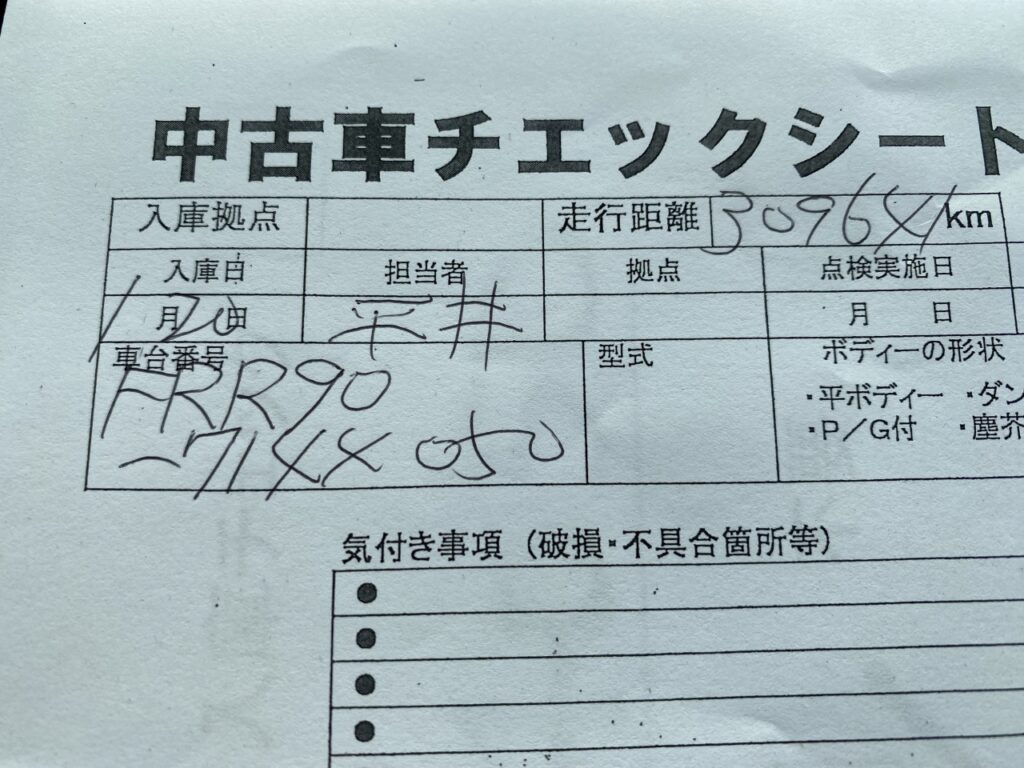 中古車チエックシート
入庫拠点 走行距離 309641 km
入庫日 担当者 拠点 点検実施日
1月20日 平井 月 日
車台番号 型式 ボディーの形状
FRR90 ・平ボディー ・ダン
-7144050 ・P/G付 ・塵芥
気付き事項（破損・不具合箇所等）
●
●
●
●